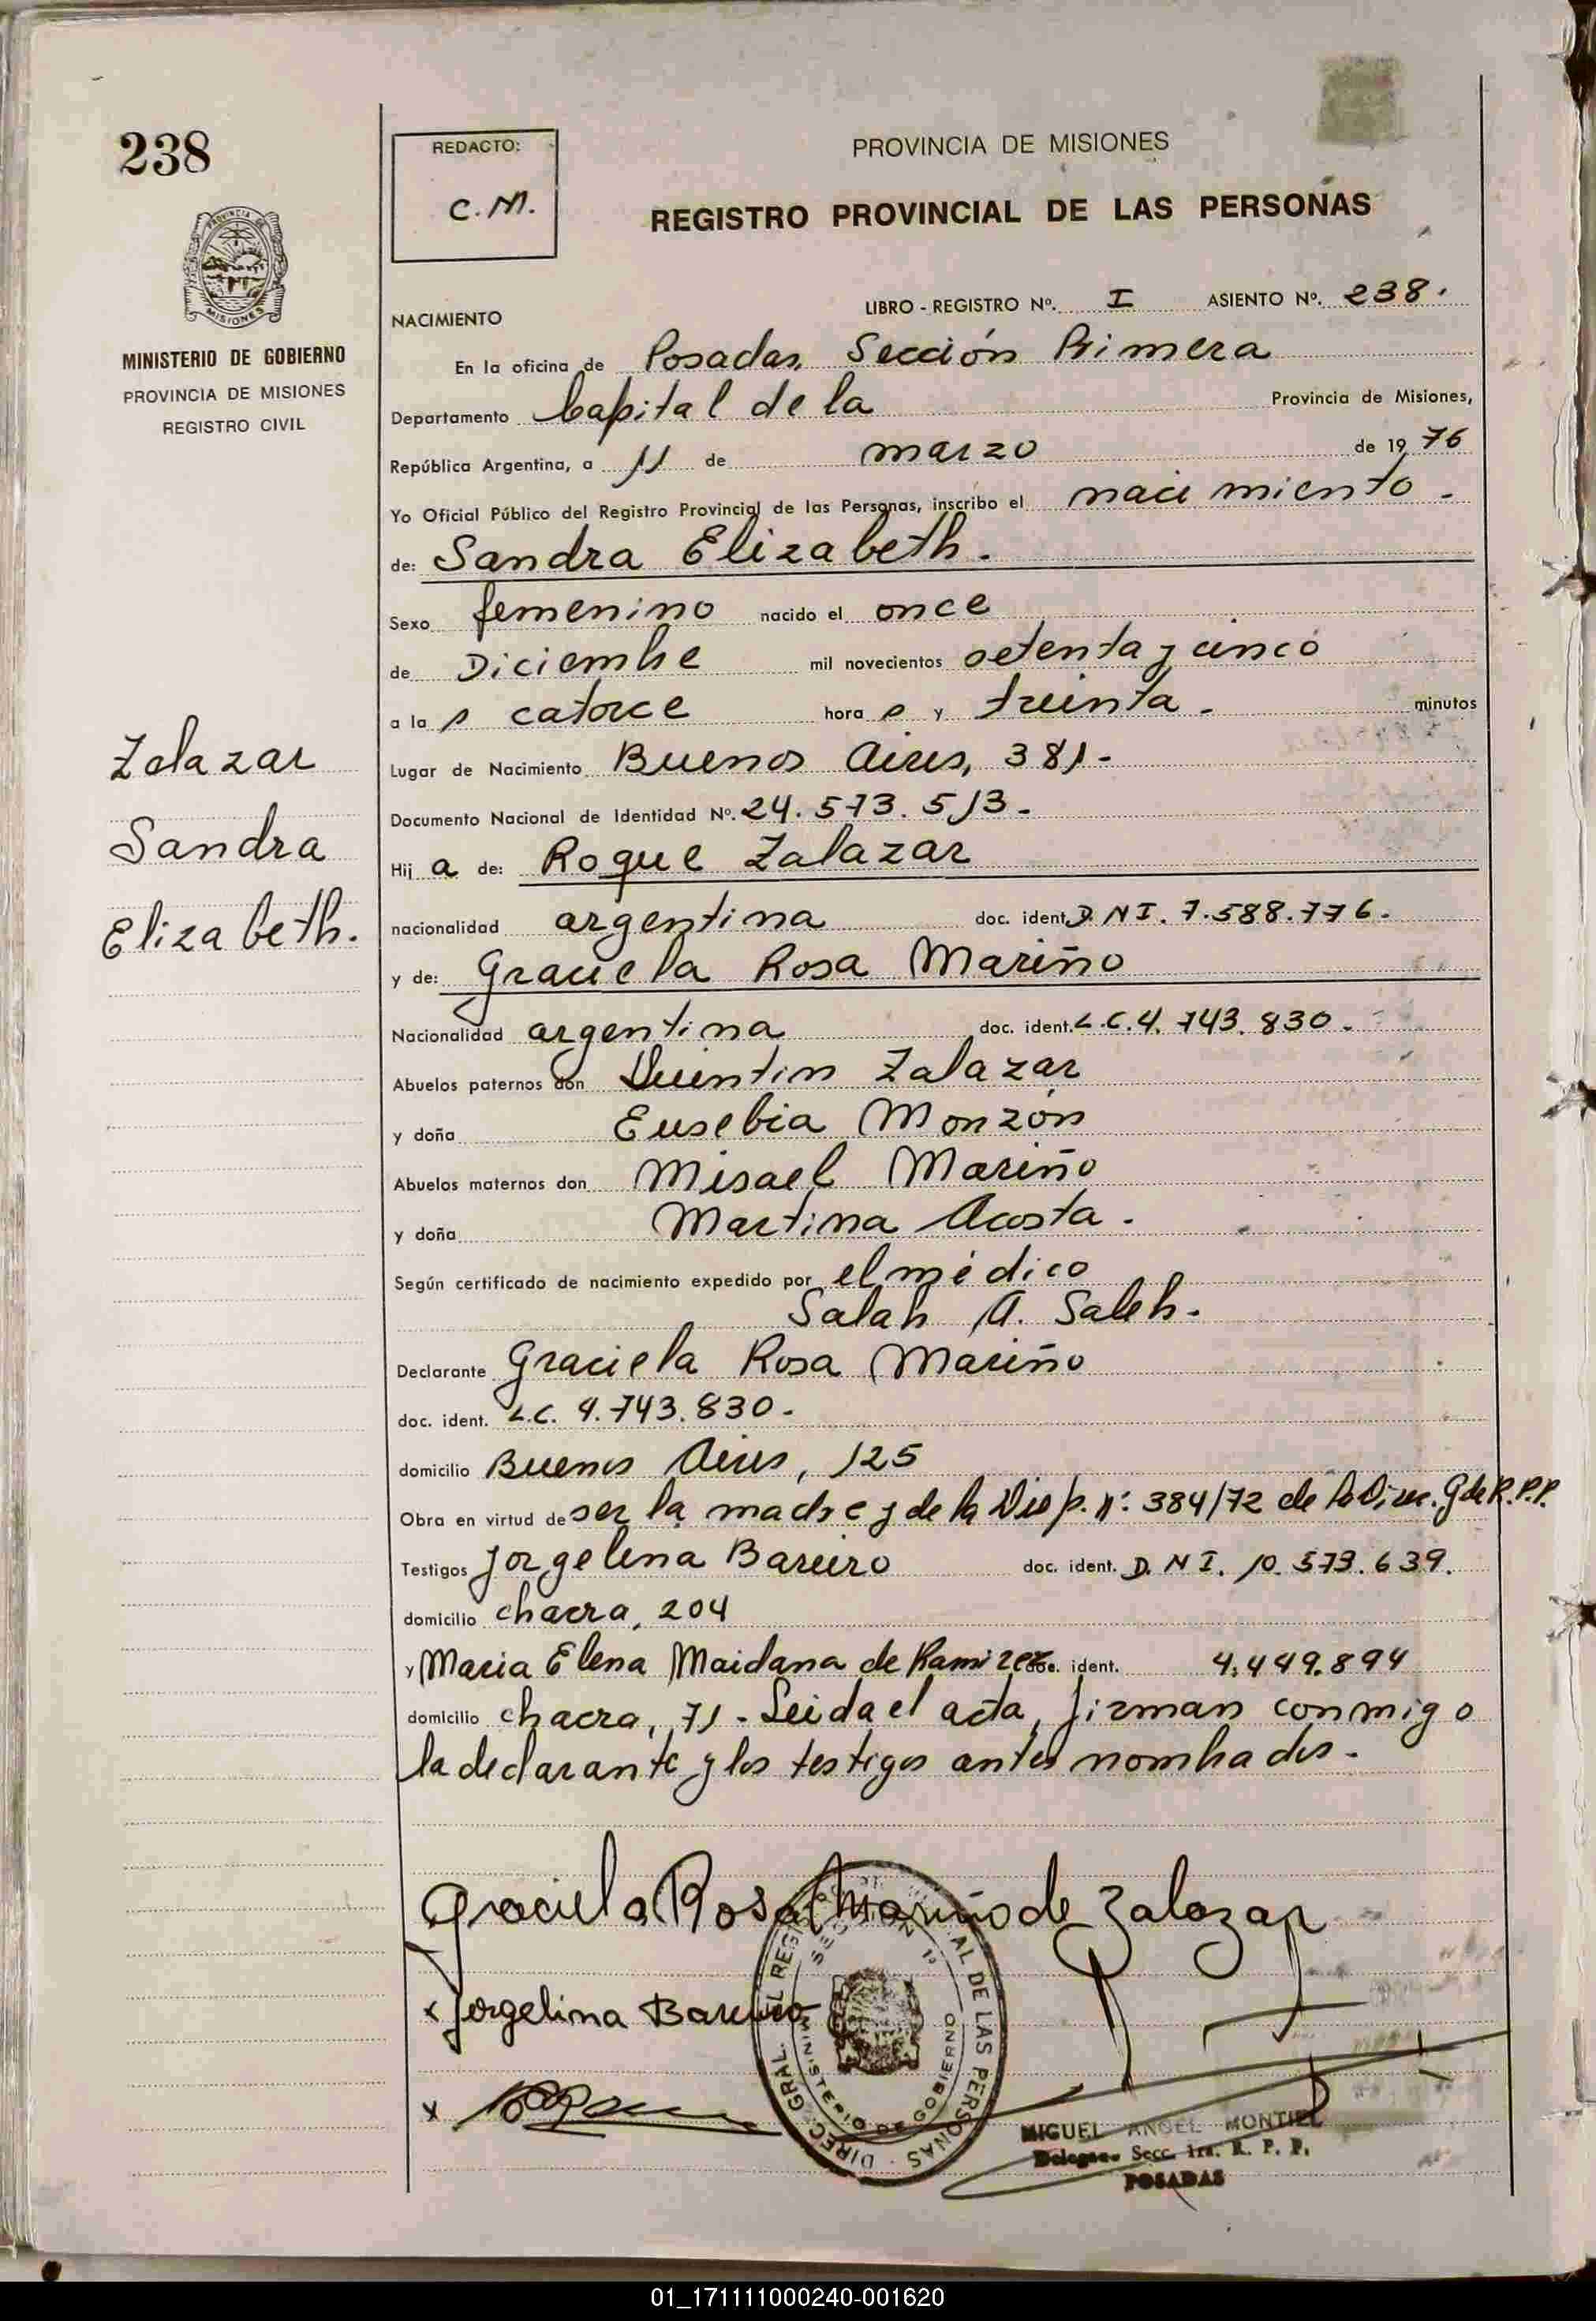 238
PROVINCIA DE
MISIONES
MINISTERIO DE GOBIERNO
PROVINCIA DE MISIONES
REGISTRO CIVIL
Zalazar
Sandra
Elizabeth.
REDACTO:
C.M.
PROVINCIA DE MISIONES
REGISTRO PROVINCIAL DE LAS PERSONAS
LIBRO - REGISTRO Nº. I ASIENTO Nº. 238.
NACIMIENTO
En la oficina de Posadas, Sección Primera
Departamento Capital de la Provincia de Misiones,
República Argentina, a 11 de marzo de 1976
Yo Oficial Público del Registro Provincial de las Personas, inscribo el nacimiento.
de: Sandra Elizabeth.
Sexo femenino nacido el once
de Diciembre mil novecientos setenta y cinco
a la s catorce hora s y treinta. minutos
Lugar de Nacimiento Buenos Aires, 381-
Documento Nacional de Identidad Nº. 24.573.513-
Hij a de: Roque Zalazar
nacionalidad argentina doc. ident. D.N I. 7.588.776.
y de: Graciela Rosa Mariño
Nacionalidad argentina doc. ident. L.C.4.743.830.
Abuelos paternos don Quintin Zalazar
y doña Eusebia Monzón
Abuelos maternos don Misael Mariño
y doña Martina Acosta.
Según certificado de nacimiento expedido por el médico
Salah A. Saleh.
Declarante Graciela Rosa Mariño
doc. ident. L.C. 4.743.830-
domicilio Buenos Aires, 125
Obra en virtud de ser la madre y de la Disp. nº: 384/72 de la Direc. G de R.P.P.
Testigos Jorgelina Bareiro doc. ident. D. N I. 10.573.639.
domicilio chacra, 204
y Maria Elena Maidana de Ramirez doc. ident. 4.449.894
domicilio chacra, 71 - Leida el acta, firman conmigo
la declarante y los testigos antes nombrados.
Graciela Rosa Mariño de Zalazar
x Jorgelina Bareiro
x
DIREC. GRAL. DEL REGISTRO PROVINCIAL DE LAS PERSONAS
SECCION 1º
MINISTERIO DE GOBIERNO
MIGUEL ANGEL MONTIEL
Delegado Secc. 1ra. R. P. P.
POSADAS
01_171111000240-001620